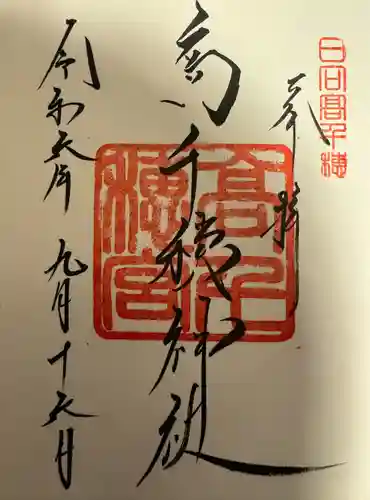 日向高千穂
奉拝
高千穂神社
高千穂宮
令和五年 九月十五日